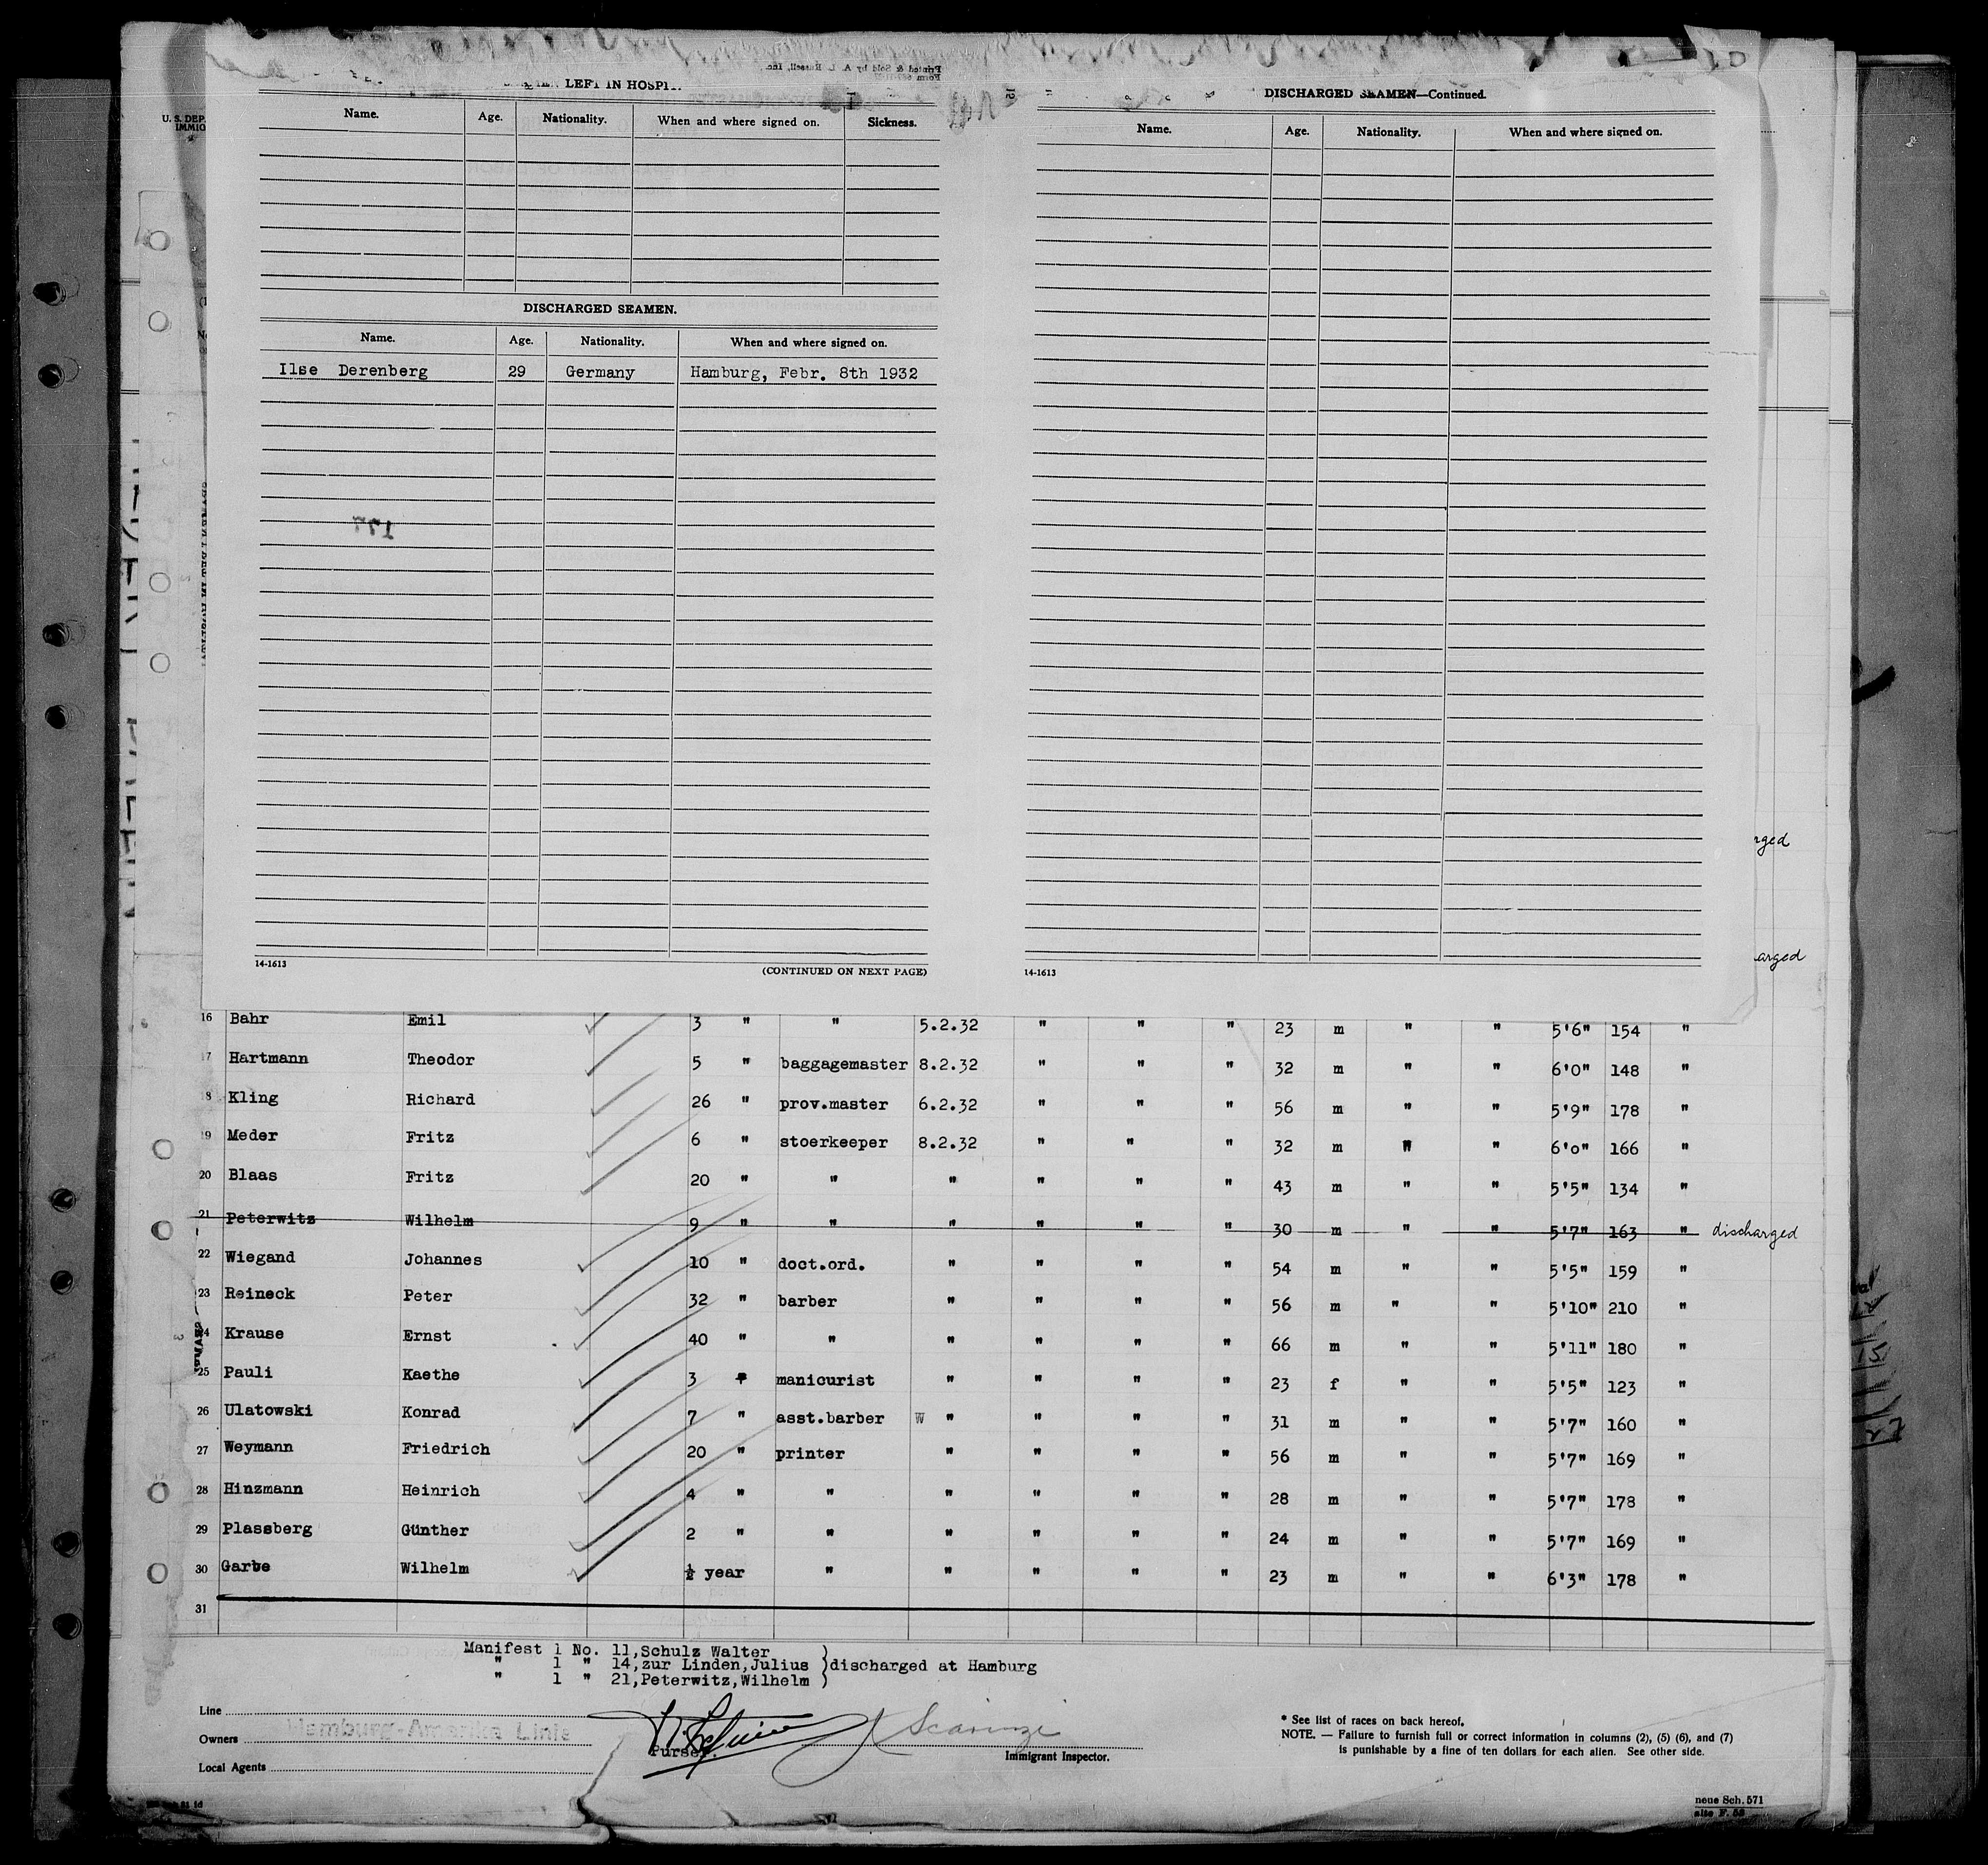 LEFT IN
Name. Age. Nationality. When and where signed on. Sickness.
DISCHARGED SEAMEN.
Name. Age. Nationality. When and where signed on.
Ilse Derenberg 29 Germany Hamburg, Febr. 8th 1932
14-1613
(CONTINUED ON NEXT PAGE)
DISCHARGED SEAMEN—Continued.
Name. Age. Nationality. When and where signed on.
14-1613
U. S. DEP
IMMIG
rged
arged
16 Bahr Emil 3 " " 5.2.32 " " " 23 m " " 5'6" 154 "
17 Hartmann Theodor 5 " baggagemaster 8.2.32 " " " 32 m " " 6'0" 148 "
18 Kling Richard 26 " prov.master 6.2.32 " " " 56 m " " 5'9" 178 "
19 Meder Fritz 6 " stoerkeeper 8.2.32 " " " 32 m " " 6'0" 166 "
20 Blaas Fritz 20 " " " " " " 43 m " " 5'5" 134 "
21 Peterwitz Wilhelm 9 " " " " " " 30 m " " 5'7" 163 " discharged
22 Wiegand Johannes 10 " doct.ord. " " " " 54 m " " 5'5" 159 "
23 Reineck Peter 32 " barber " " " " 56 m " " 5'10" 210 "
24 Krause Ernst 40 " " " " " " 66 m " " 5'11" 180 "
25 Pauli Kaethe 3 " manicurist " " " " 23 f " " 5'5" 123 "
26 Ulatowski Konrad 7 " asst.barber " " " " 31 m " " 5'7" 160 "
27 Weymann Friedrich 20 " printer " " " " 56 m " " 5'7" 169 "
28 Hinzmann Heinrich 4 " " " " " " 28 m " " 5'7" 178 "
29 Plassberg Günther 2 " " " " " " 24 m " " 5'7" 169 "
30 Garbe Wilhelm ½ year " " " " " 23 m " " 6'3" 178 "
31
Manifest 1 No. 11,Schulz Walter )
" 1 " 14,zur Linden,Julius )discharged at Hamburg
" 1 " 21,Peterwitz,Wilhelm )
Line
Owners Hamburg-Amerika Linie
Local Agents
Purser.
Scaringi
Immigrant Inspector.
* See list of races on back hereof.
NOTE. — Failure to furnish full or correct information in columns (2), (5) (6), and (7)
is punishable by a fine of ten dollars for each alien. See other side.
neue Sch. 571
alte F. 53